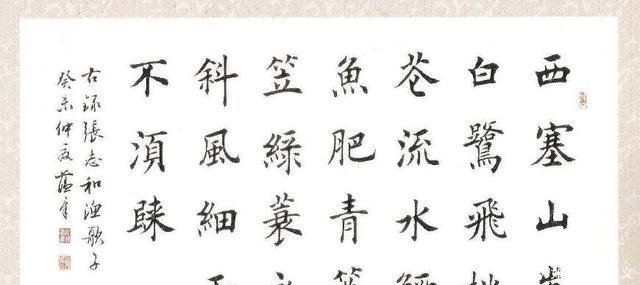 西塞山
白鷺飛
花流水
魚肥青
笠綠蓑
斜風細
不湏歸
右録張志和漁歌子
癸未仲夏